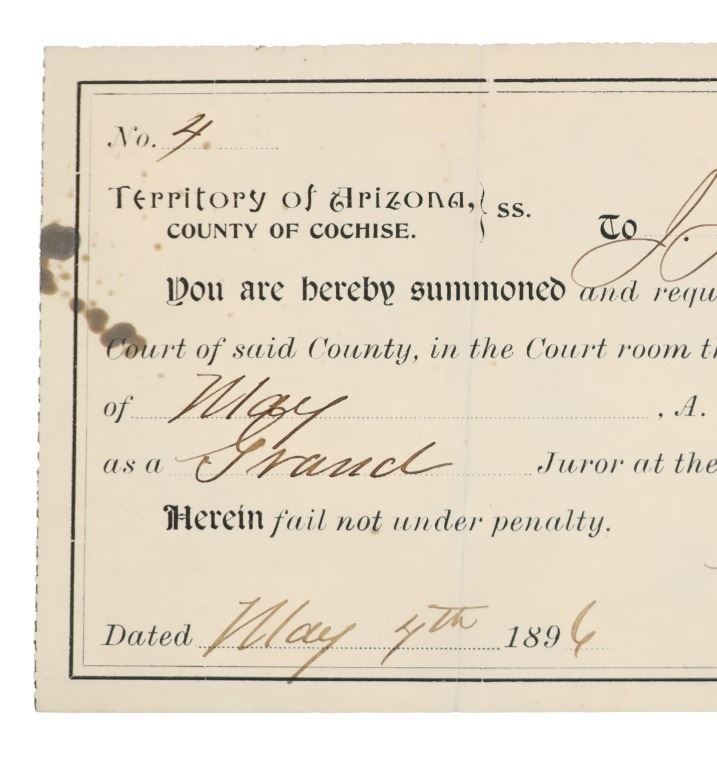 No. 4
Territory of Arizona, } ss.
COUNTY OF COCHISE.
To J.
You are hereby summoned and requ
Court of said County, in the Court room th
of May , A.
as a Grand Juror at the
Herein fail not under penalty.
Dated May 4th 1896